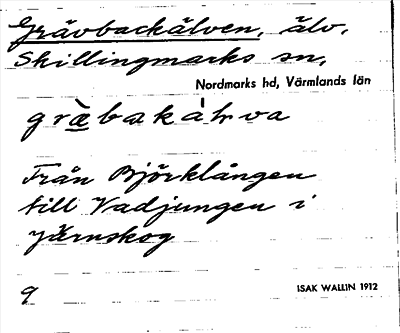 Grävbackälven, älv,
Skillingmarks sn,
Nordmarks hd, Värmlands län
græ̀bakáḷva
Från Björklången
till Vadjungen i
Järnskog
9
ISAK WALLIN 1912